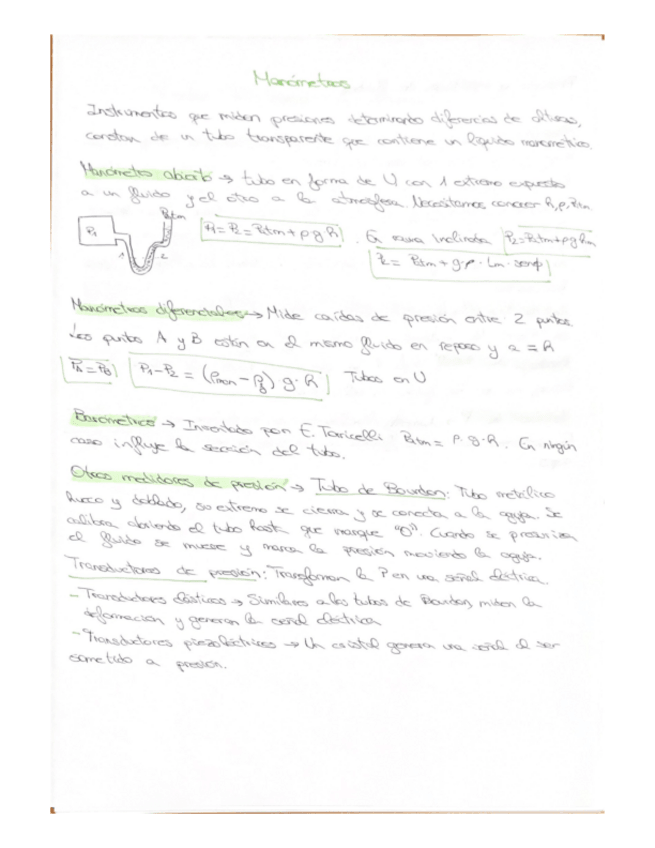 Manómetros
Instrumentos que miden presiones determinando diferencias de alturas,
constan de un tubo transparente que contiene un líquido manométrico.
Manómetro abierto → tubo en forma de U con 1 extremo expuesto
a un fluido y el otro a la atmósfera. Necesitamos conocer h, ρ, Patm
Patm
P1
P1 = P2 = Patm + ρ g h . En rama inclinada P2 = Patm + ρ g hm
1 2
P2 = Patm + g · ρ · Lm · senϕ
Manómetros diferenciales → Mide caídas de presión entre 2 puntos
Los puntos A y B están en el mismo fluido en reposo y a = h
PA = PB P1 - P2 = (ρman - ρf) g · h Tubos en U
Barómetros → Inventado por E. Torricelli Patm = ρ · g · h. En ningún
caso influye la sección del tubo.
Otros medidores de presión → Tubo de Bourdon: Tubo metálico
hueco y doblado, su extremo se cierra y se conecta a la aguja. Se
calibra abriendo el tubo hasta que marque "0". Cuando se presuriza
el fluido se mueve y marca la presión moviendo la aguja.
Transductores de presión: Transforman la P en una señal eléctrica.
- Transductores elásticos → Similares a los tubos de Bourdon, miden la
deformación y generan la señal eléctrica
- Transductores piezoeléctricos → Un cristal genera una señal al ser
sometido a presión.